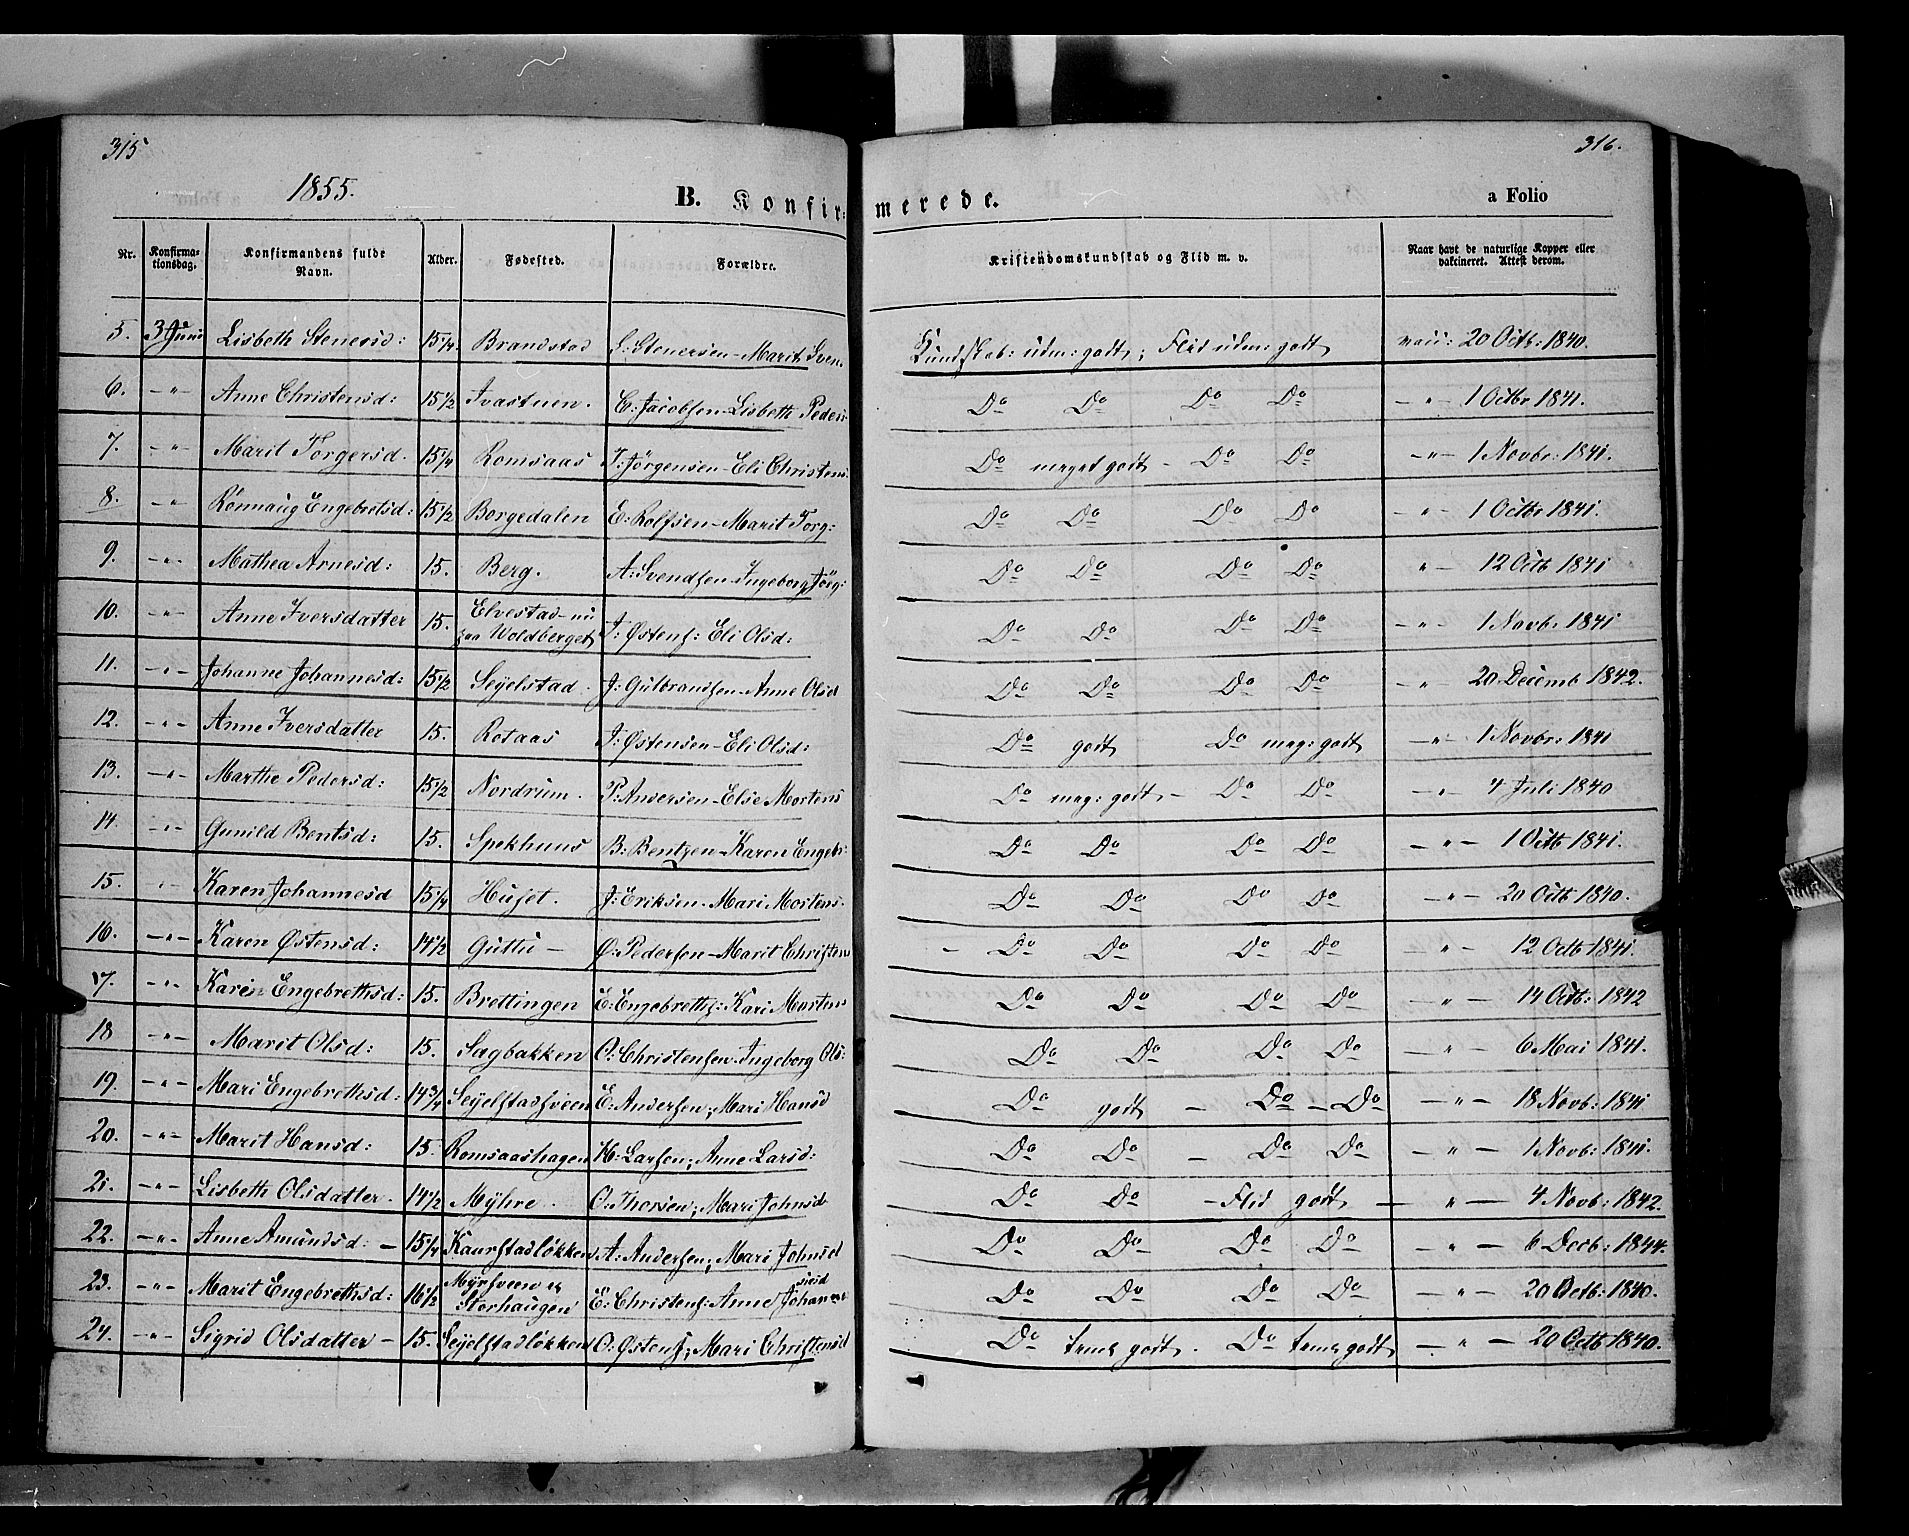 315
316.
1855.
B. Konfir-
merede.
a Folio
Nr.
Konfirma-
tionsdag.
Konfirmandens fulde
Navn.
Alder.
Fødested.
Forældre.
Kristendomskundskab og Flid m. v.
Naar havt de naturlige Kopper eller
vaktineret. Attest derom.
5. 3 Juni Lisbeth Stenersd: 15 1/4. Brandstad S: Stenersen - Marit Sven. Kundskab: udm: godt; Flid udm: godt vacc: 20 Octb: 1840.
6. -"- Anne Christensd: 15 1/2 Ivastuen. C: Jacobsen - Lisbeth Peders Do Do Do Do -"- 1 Octbr 1841.
7. -"- Marit Torgersd. 15 1/4 Romsaas T: Jörgensen - Eli Christens Do meget godt - Do Do -"- 1 Novbr: 1841.
8. -"- Rönnaug Engebretsd: 15 1/2 Borgedalen E: Rolfsen - Marit Torg: Do Do Do Do -"- 1 Octbr 1841.
9. -"- Mathea Arnesd: 15. Berg. A: Svendsen - Ingeborg Jörg: Do Do Do Do " - 12 Octb 1841
10. -"- Anne Iversdatter 15. Elvestad - nu
paa Woldberget I: Østens: Eli Olsd: Do Do Do Do -"- 1 Novb: 1841
11. -"- Johanne Johannesd: 15 1/2 Seielstad. J: Gulbrandsen - Anne Olsd Do Do Do Do -"- 20 Decemb 1842.
12. -"- Anne Iversdatter 15. Rotaas I: Østensen - Eli Olsd: Do godt Do meg: godt -"- 1 Novbr: 1841
13. -"- Marthe Pedersd: 15 1/2 Nordrum. P: Andersen - Else Mortens Do meg: godt - Do Do -"- 4 Juli 1840
14. -"- Gunild Bentsd: 15. Spekhuus B: Bentzen - Karen Engebr: Do Do Do Do -"- 1 Octb 1841.
15. "- Karen Johannesd 15 1/4 Huset. J: Eriksen - Mari Mortens. Do Do Do Do -"- 20 Octb 1840.
16. -"- Karen Østensd: 14 1/2 Guttu - Ø: Pedersen - Marit Christens - Do Do Do Do "- 12 Octb 1841.
17. -"- Karen Engebrethsd: 15. Brettingen E: Engebreths: Kari Mortens Do Do Do Do -"- 14 Octb: 1842
18 -"- Marit Olsd: 15. Sagbakken O: Christensen - Ingeborg Ols: Do Do Do Do -"- 6 Mai 1841.
19. -"- Mari Engebrethsd: 14 3/4 Seielstadsveen E: Andersen; Mari Hansd Do godt - Do - Do -"- 18 Novb: 1841
20. -"- Marit Hansd: 15. Romsaashagen H: Larsen; Anne Larsd: Do Do - Do Do -"- 1 Novb: 1841.
21. -"- Lisbeth Olsdatter. 14 1/2 Myhre. O: Thorsen; Mari Johnsd Do Do - Flid godt -"- 4 Novb: 1842.
22. -"- Anne Amundsd: - 15 1/4 Kaurstadløkken A: Andersen; Mari Johnsd Do Do Do Do -"- 6 Decb: 1844.
23. -"- Marit Engebrethsd: 16 1/2
Storhaugen E: Christens: Anne Johannesd Do Do Do Do -"- 20 Octb: 1840.
24. -"- Sigrid Olsdatter - 15. Seielstadløkken O: Østens; Mari Christensd Do temg godt. Do temg godt -"- 20 Octb 1840.